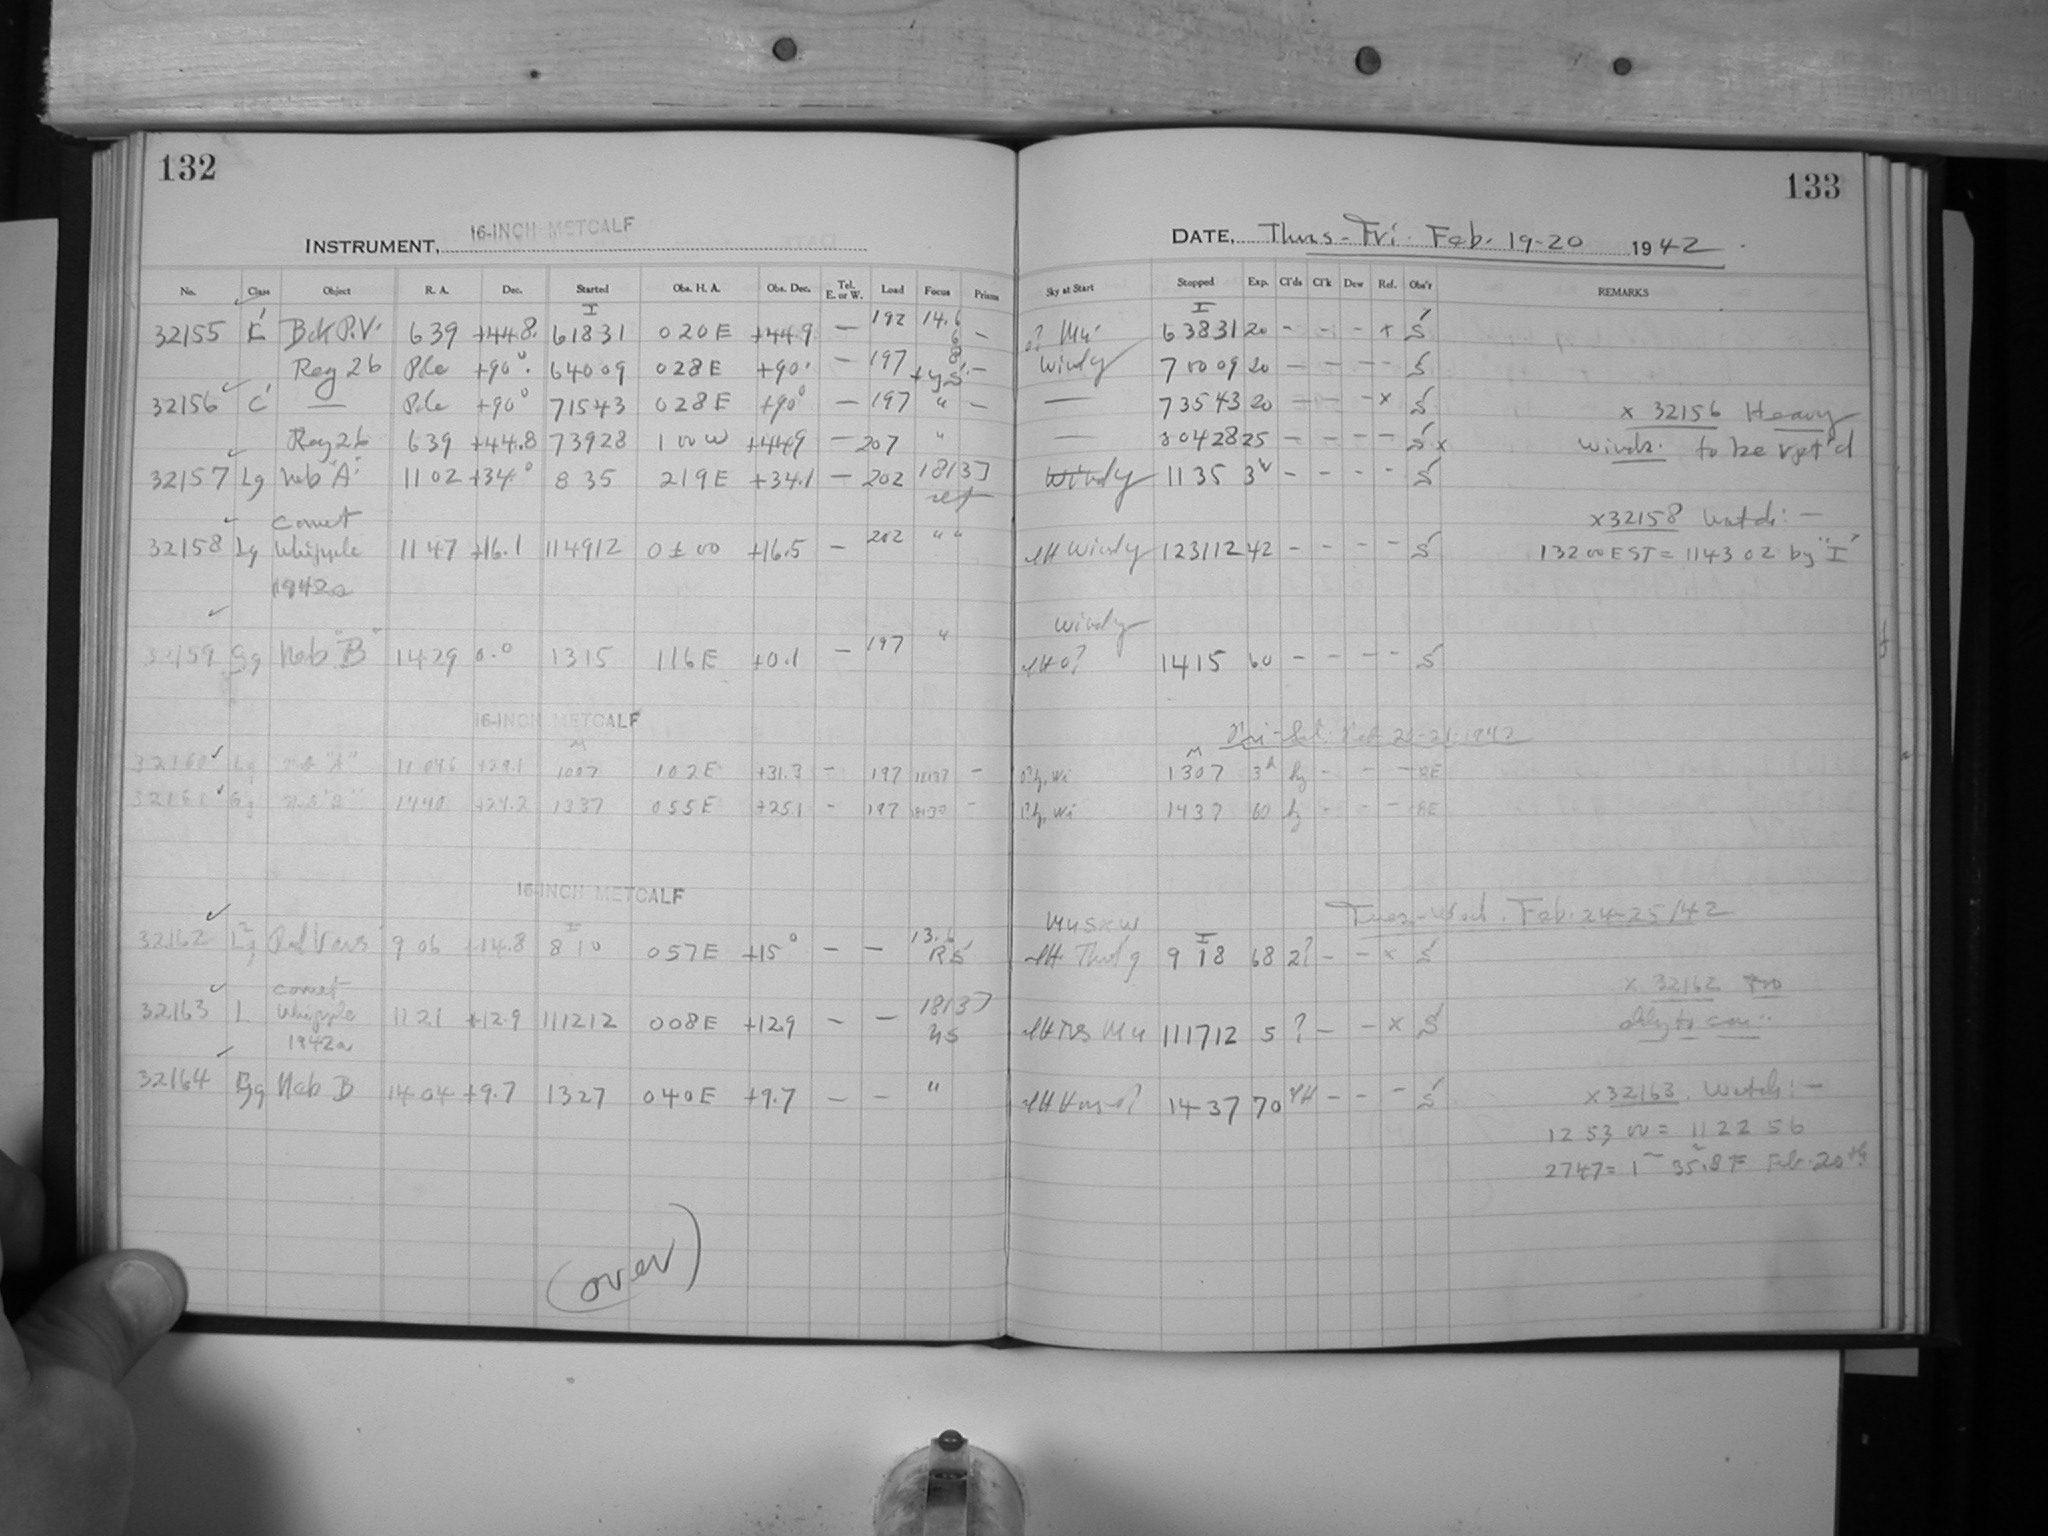 132
133
INSTRUMENT, 16-INCH METCALF
DATE, Thurs-Fri. Feb. 19-20 1942
No. Class Object R. A. Dec. Started Obs. H. A. Obs. Dec. Tel. E. or W. Load Focus Prism Sky at Start Stopped Exp. Cl'ds Cl'k Dew Ref. Obs'r REMARKS
32155 C 639 +44.8 61831 020E +44.9 — 192 14.6 — 63831 20 - - - x S
Reg 26 Pole +90° 64009 028E +90° — 197 — Windy 70009 20 - - - - S
32156 C — Pole +90° 71543 028E +90° — 197 " — — 73543 20 - - - x S x 32156 Heavy
Reg 26 639 +44.8 73928 100W +449 — 207 " — 80428 25 - - - - S x winds. to be rpt'd
32157 Lg Neb "A" 1102 +34° 835 219E +34.1 — 202 18137 Windy 1135 3h - - - - S
32158 Lg Comet Whipple 1942a 1147 +16.1 114912 0±00 +16.5 — 202 " " Windy 123112 42 - - - - S x32158 Watch: —
13200 EST = 114302 by "I"
32159 Neb "B" 1429 0.0 1315 116E +0.1 — 197 " Windy 1415 60 - - - - S
16-INCH METCALF
Fri-Sat. Feb 20-21 1942
32160 Neb "A" +29.1 1007 102E +31.3 - 197 18137 - 1307 3h hz - - - RE
32161 1440 +24.2 1337 055E +25.1 - 197 - 1437 60 hz - - - RE
16-INCH METCALF
Tues-Wed. Feb. 24-25/42
32162 906 +14.8 810 057E +15° — — 13.6 918 68 2? - - x S x 32162
32163 L Comet Whipple 1942a 1121 +12.9 111212 008E +12.9 — — 18137 111712 5 ? - - x S
32164 Neb B 1404 +9.7 1327 040E +9.7 — — " 1437 70 - - - S x 32163. Watch: —
12 53 00 = 11 22 56
2747 = 1 35.8 F Feb. 20th
(over)